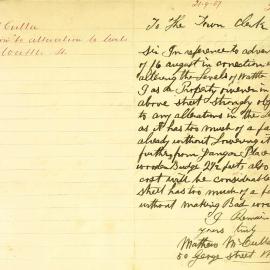 21-9-07
Culla
to alteration to levels
Wattle St.
To The Town Clerk
Sir In reference to adver
of 16 august in connection
altering the Levels of Wattle
I as a Property owner in
above street strongly ob
to any alterations in the
as it has too much of a fa
already without Lowering it
further from Jangan Place
wooden Budge 2½ feet also
cost will be considerable
street has too much of a f
without making Bad wo
I Remain
yours truly
Mathew McCulla
50 George street